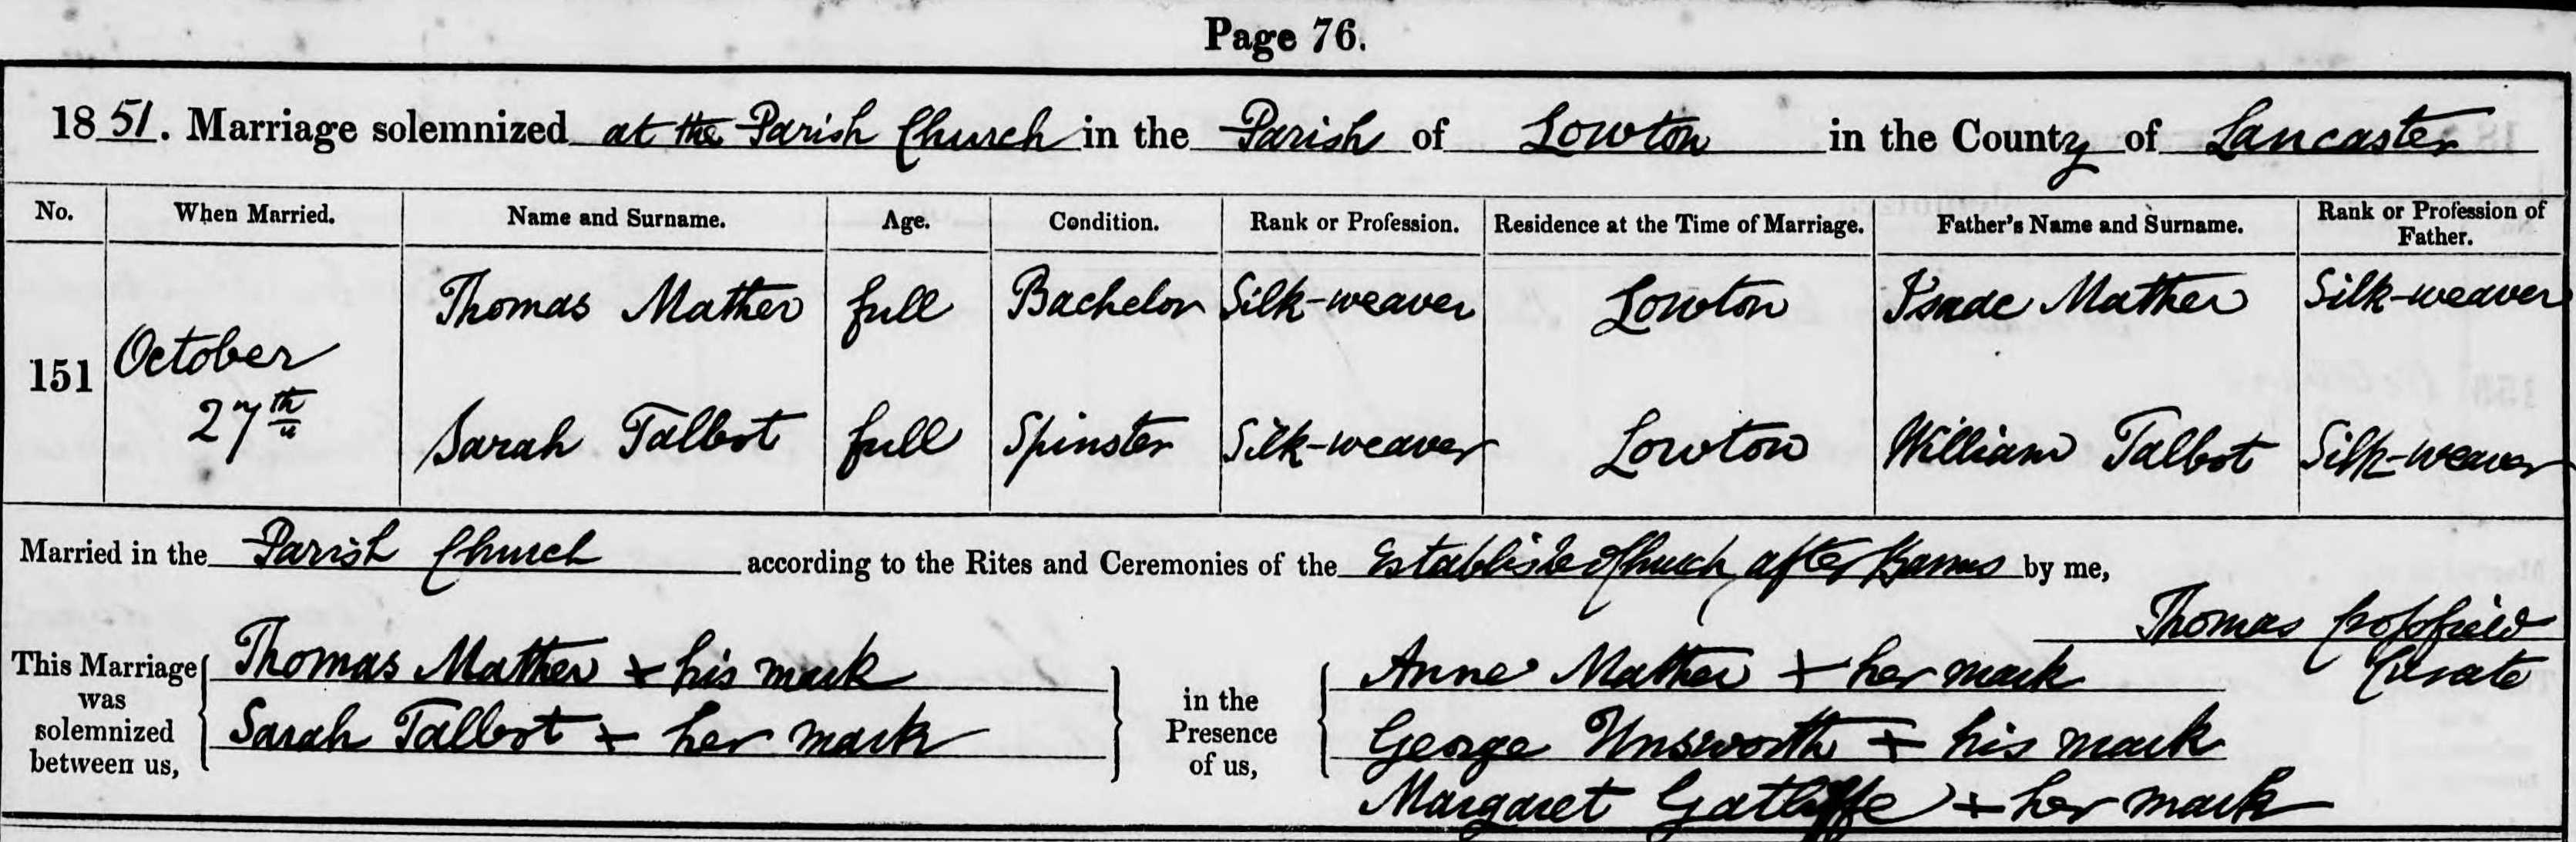 Page 76.
1851. Marriage solemnized at the Parish Church in the Parish of Lowton in the County of Lancaster
No. When Married. Name and Surname. Age. Condition. Rank or Profession. Residence at the Time of Marriage. Father's Name and Surname. Rank or Profession of Father.
151 October 27th
Thomas Mather full Bachelor Silk-weaver Lowton Isaac Mather Silk-weaver
Sarah Talbot full Spinster Silk-weaver Lowton William Talbot Silk-weaver
Married in the Parish Church according to the Rites and Ceremonies of the Established Church, after Banns by me,
Thomas Coppfield
Curate
This Marriage was solemnized between us,
Thomas Mather + his mark
Sarah Talbot + her mark
in the Presence of us,
Anne Mather + her mark
George Unsworth + his mark
Margaret Gatliffe + her mark